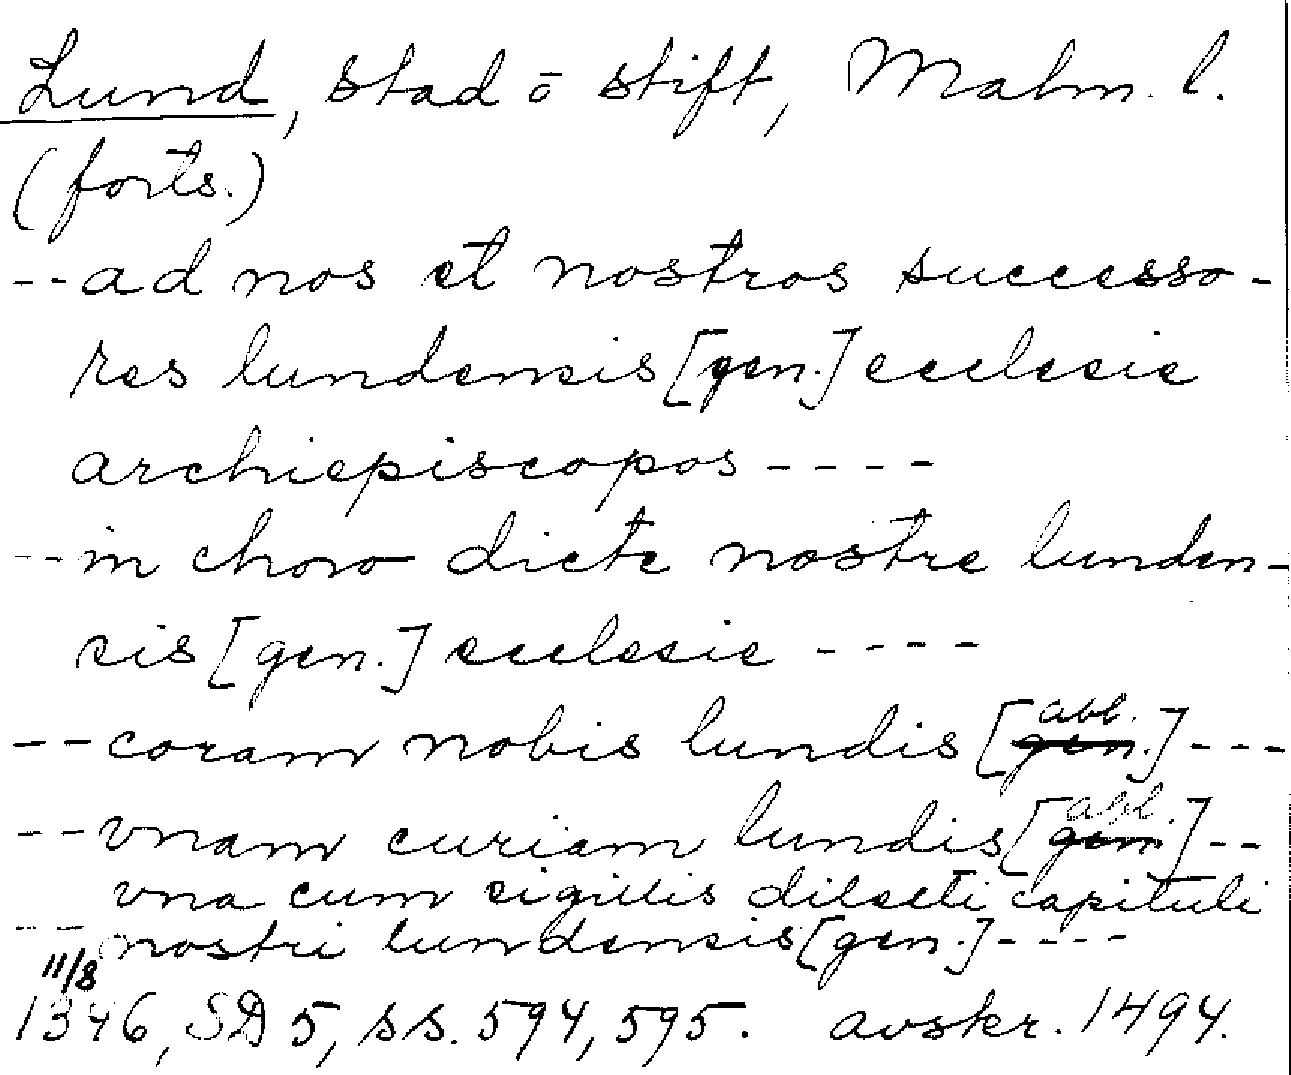 Lund, stad o stift, Malm. l.
(forts.)
--ad nos et nostros successo-
res lundensis [gen.] ecclesie
archiepiscopos ----
--in choro dicte nostre lunden-
sis [gen.] ecclesie ----
--coram nobis lundis [gen. abl.] ---
--vnam curiam lundis [gen. abl.] --
vna cum sigillis dilecti capituli
--nostri lundensis [gen.] ----
11/8
1346, SD 5, ss. 594, 595. avskr. 1494.